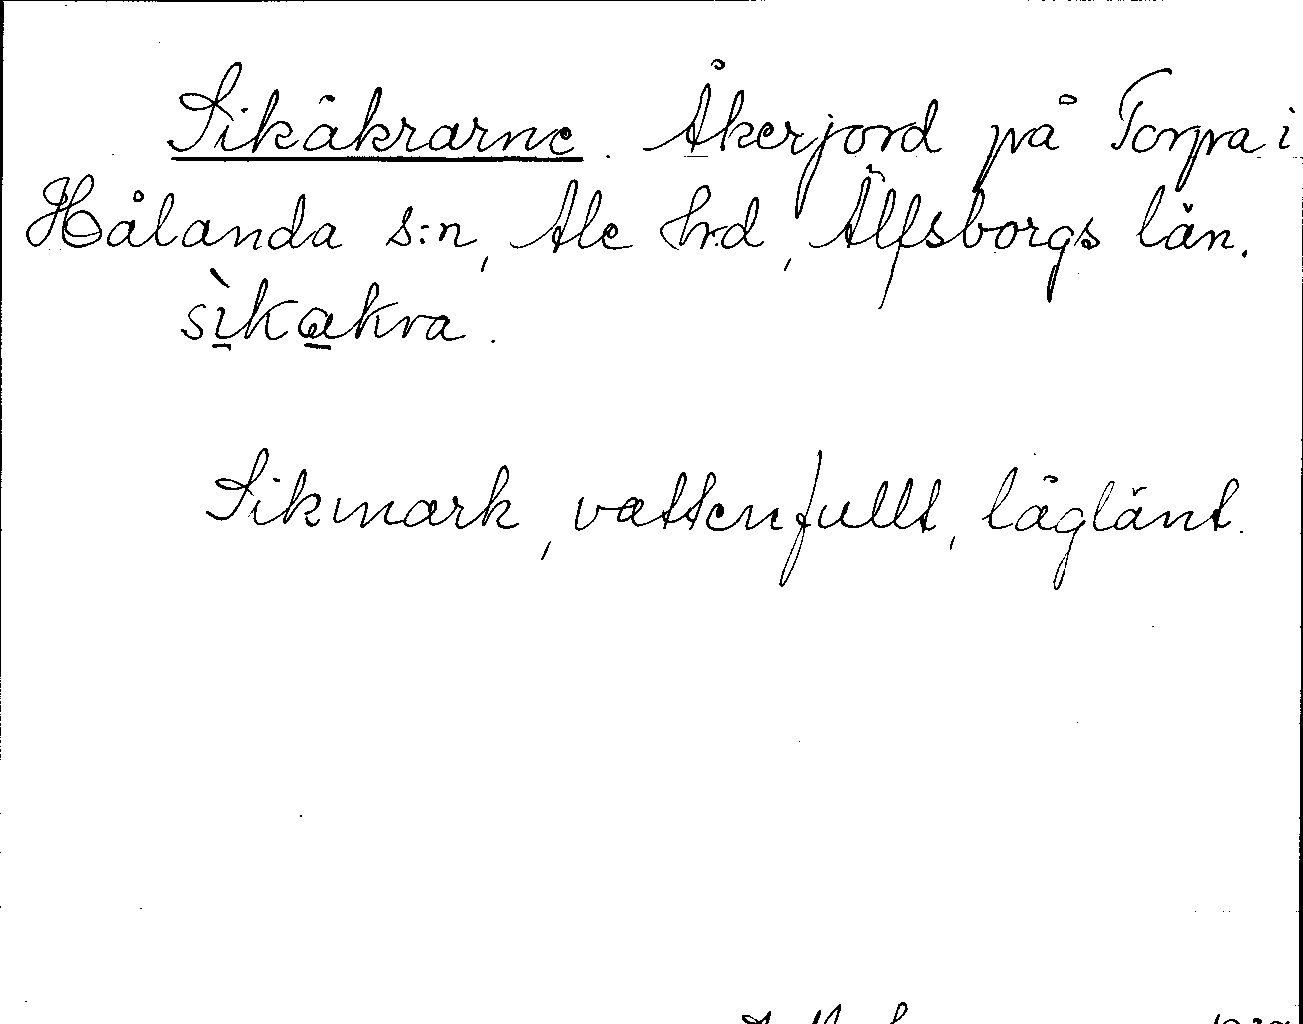 Sikåkrarne. Åkerjord på Torpa i
Hålanda s:n, Ale hrd, Älfsborgs län.
sìkakra.
Sikmark, vattenfullt, låglänt.